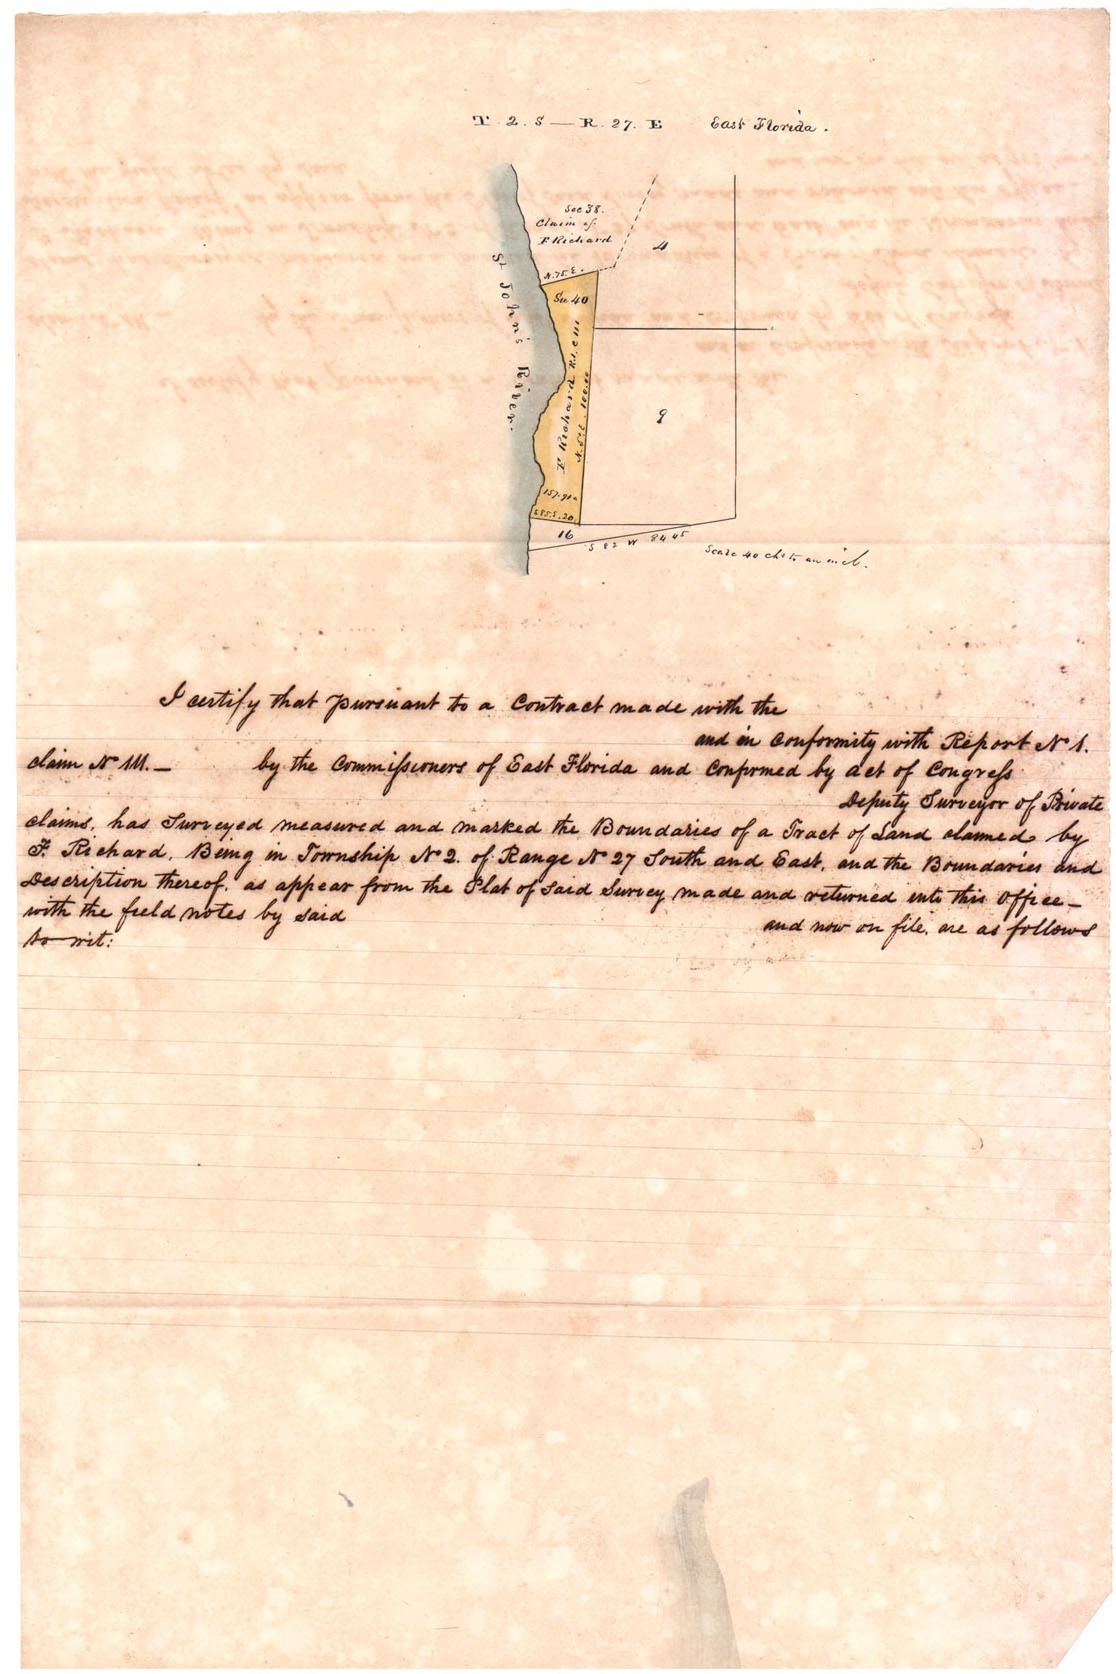 T. 2. S — R. 27. E East Florida.
Sec 38.
Claim of
F Richard
4
N. 75. E.
Sec 40
St John's River.
F Richard R.1. C 111
N. 5° E. 100.00
9
157.91 a
S 85 E. 20
16
S 82 W 84 45
Scale 40 chs to an inch.
I certify that pursuant to a Contract made with the
and in conformity with Report No 1.
claim No 111. — by the Commissioners of East Florida and Confirmed by act of Congress
Deputy Surveyor of Private
claims, has Surveyed measured and marked the Boundaries of a Tract of Land claimed by
F. Richard, Being in Township No 2. of Range No 27 South and East, and the Boundaries and
Description thereof, as appear from the Plat of Said Survey made and returned into this office —
with the field notes by said and now on file, are as follows
to wit: